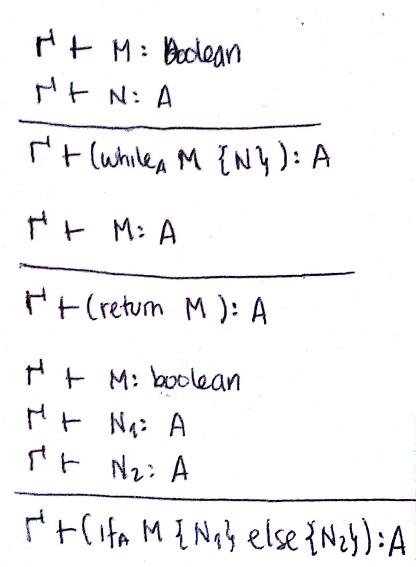 Γ ⊢ M: Boolean
Γ ⊢ N: A
Γ ⊢ (while_A M {N}): A
Γ ⊢ M: A
Γ ⊢ (return M): A
Γ ⊢ M: boolean
Γ ⊢ N₁: A
Γ ⊢ N₂: A
Γ ⊢ (if_A M {N₁} else {N₂}): A